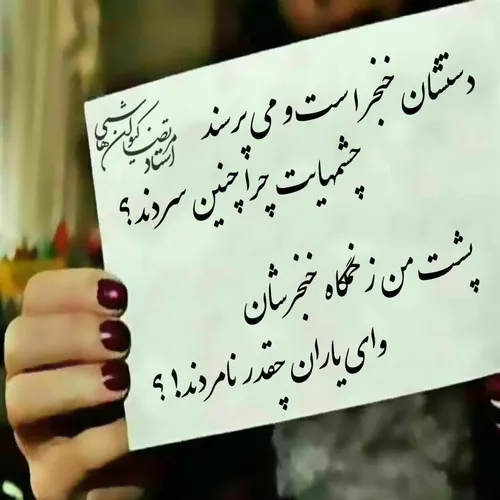 دستشان خنجر است و می پرسند
چشمهایت چرا چنین سردند؟
پشت من زخمگاه خنجرشان
وای یاران چقدر نامردند!؟
استاد مرتضی کیوان هاشمی